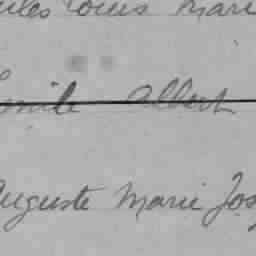 ules Louis Mari
Emile Albert
Auguste Marie Jos